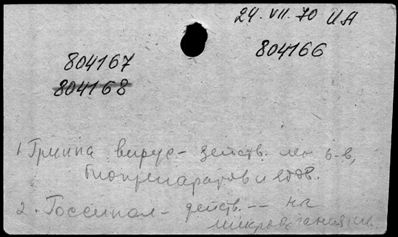 24. VII. 70 ИА
804167 804166
804168
1. Гриппа вирус - действ. лек. в-в,
биопрепаратов и
2. Госсипол - действ. -- на
микроорганизм.